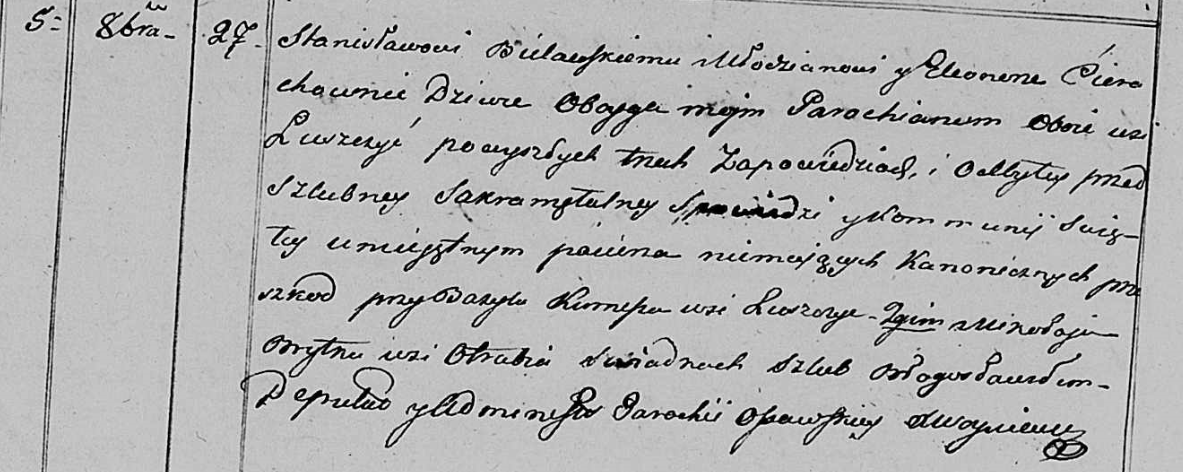 5= 8bra- 27- Stanisławowi Bielawskiemu Młodzianowi y Eleonorze Ciera
chownie Dziwce Obojga mojm Parochianom Obni wsi
Luszczyć powyszłych trzech Zapowiedziach, i Odbytey przed
Szlubney Sakramętalney Spowiedzi y Kommunij Swię-
tey umiejętnym pacierza niemających Kanonicznych prze
szkod przy Bazylu wsi Luszczyc - 2gim Mikołaju
wsi Otrubia Swiadkach Szlub Błogosławiłem-
Deputat y Administr Parochii